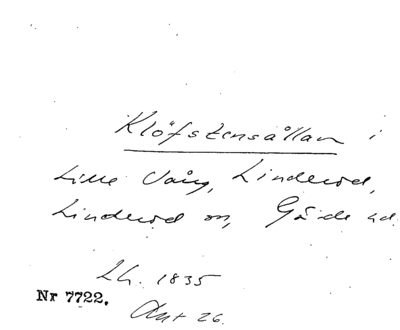 Klöfstensållan i
Lille Vång, Linderöd,
Linderöd sn, Gärds hd.
Lh. 1835
Nr 7722.
Akt 26.